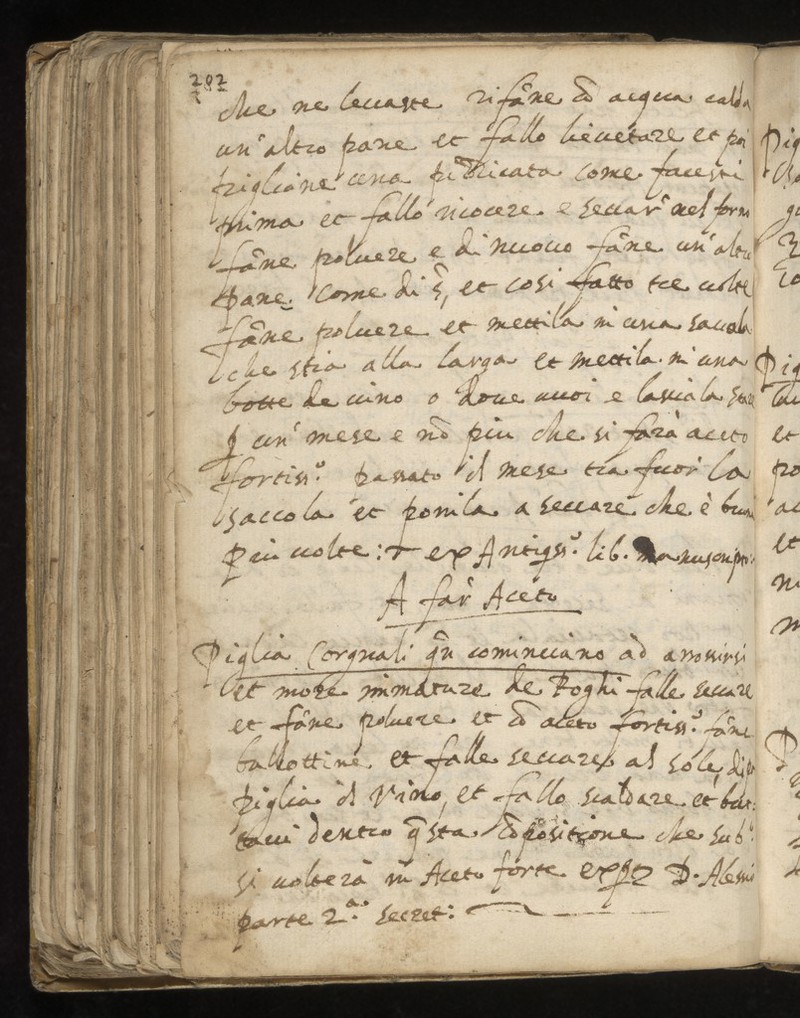 282
che ne leuaste rifāne cō acqua calda
un' altro pane et fallo lieuetare et poi
pigliane una pūicata come facesti
prima et fallo ricocere e seccar' nel forno
fāne poluere e di nuouo fāne un' altro
pane come di s̄, et cosi fatto tre uolte
fāne poluere et mettila in una saccola
che stia alla larga et mettila in una
botte de uino o doue uuoi e lasciala stare
p un' mese e nō piu che si farà aceto
fortiss.º passato il mese tra fuor la
saccola et ponila a seccare che è buona
piu uolte: ex Antiqss.º lib. manuscript:
A far Aceto
Piglia Corgnali qn̄ cominciano ad arrossirsi
et more immature de Roghi falle seccare
et fāne poluere et cō aceto fortiss.º fāne
ballottine et falle seccare al sole, di poi
piglia il Vino, et fallo scaldare et but:
taui dentro q̄sta cōpositione che sub.º
si uolterà in Aceto forte D. Alessi
parte 2.ª secret:
Pig
Pig
et
et